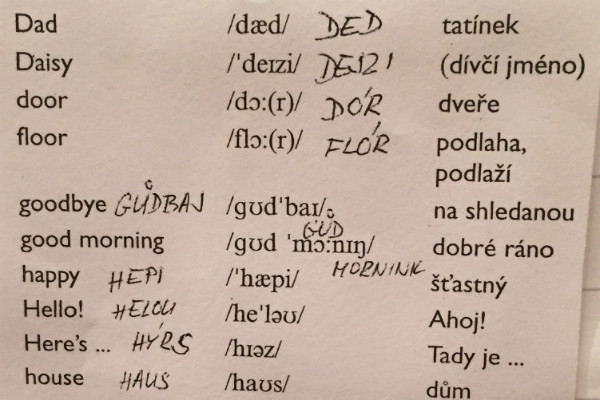 Dad /dæd/ DED tatínek
Daisy /ˈdeɪzi/ DEJZI (dívčí jméno)
door /dɔ:(r)/ DÓR dveře
floor /flɔ:(r)/ FLÓR podlaha,
podlaží
goodbye GŮDBAJ /gʊdˈbaɪ/ na shledanou
good morning /gʊd ˈmɔ:nɪŋ/ GŮD MORNINK dobré ráno
happy HEPI /ˈhæpi/ šťastný
Hello! HELOU /heˈləʊ/ Ahoj!
Here's ... HÝRS /hɪəz/ Tady je ...
house HAUS /haʊs/ dům